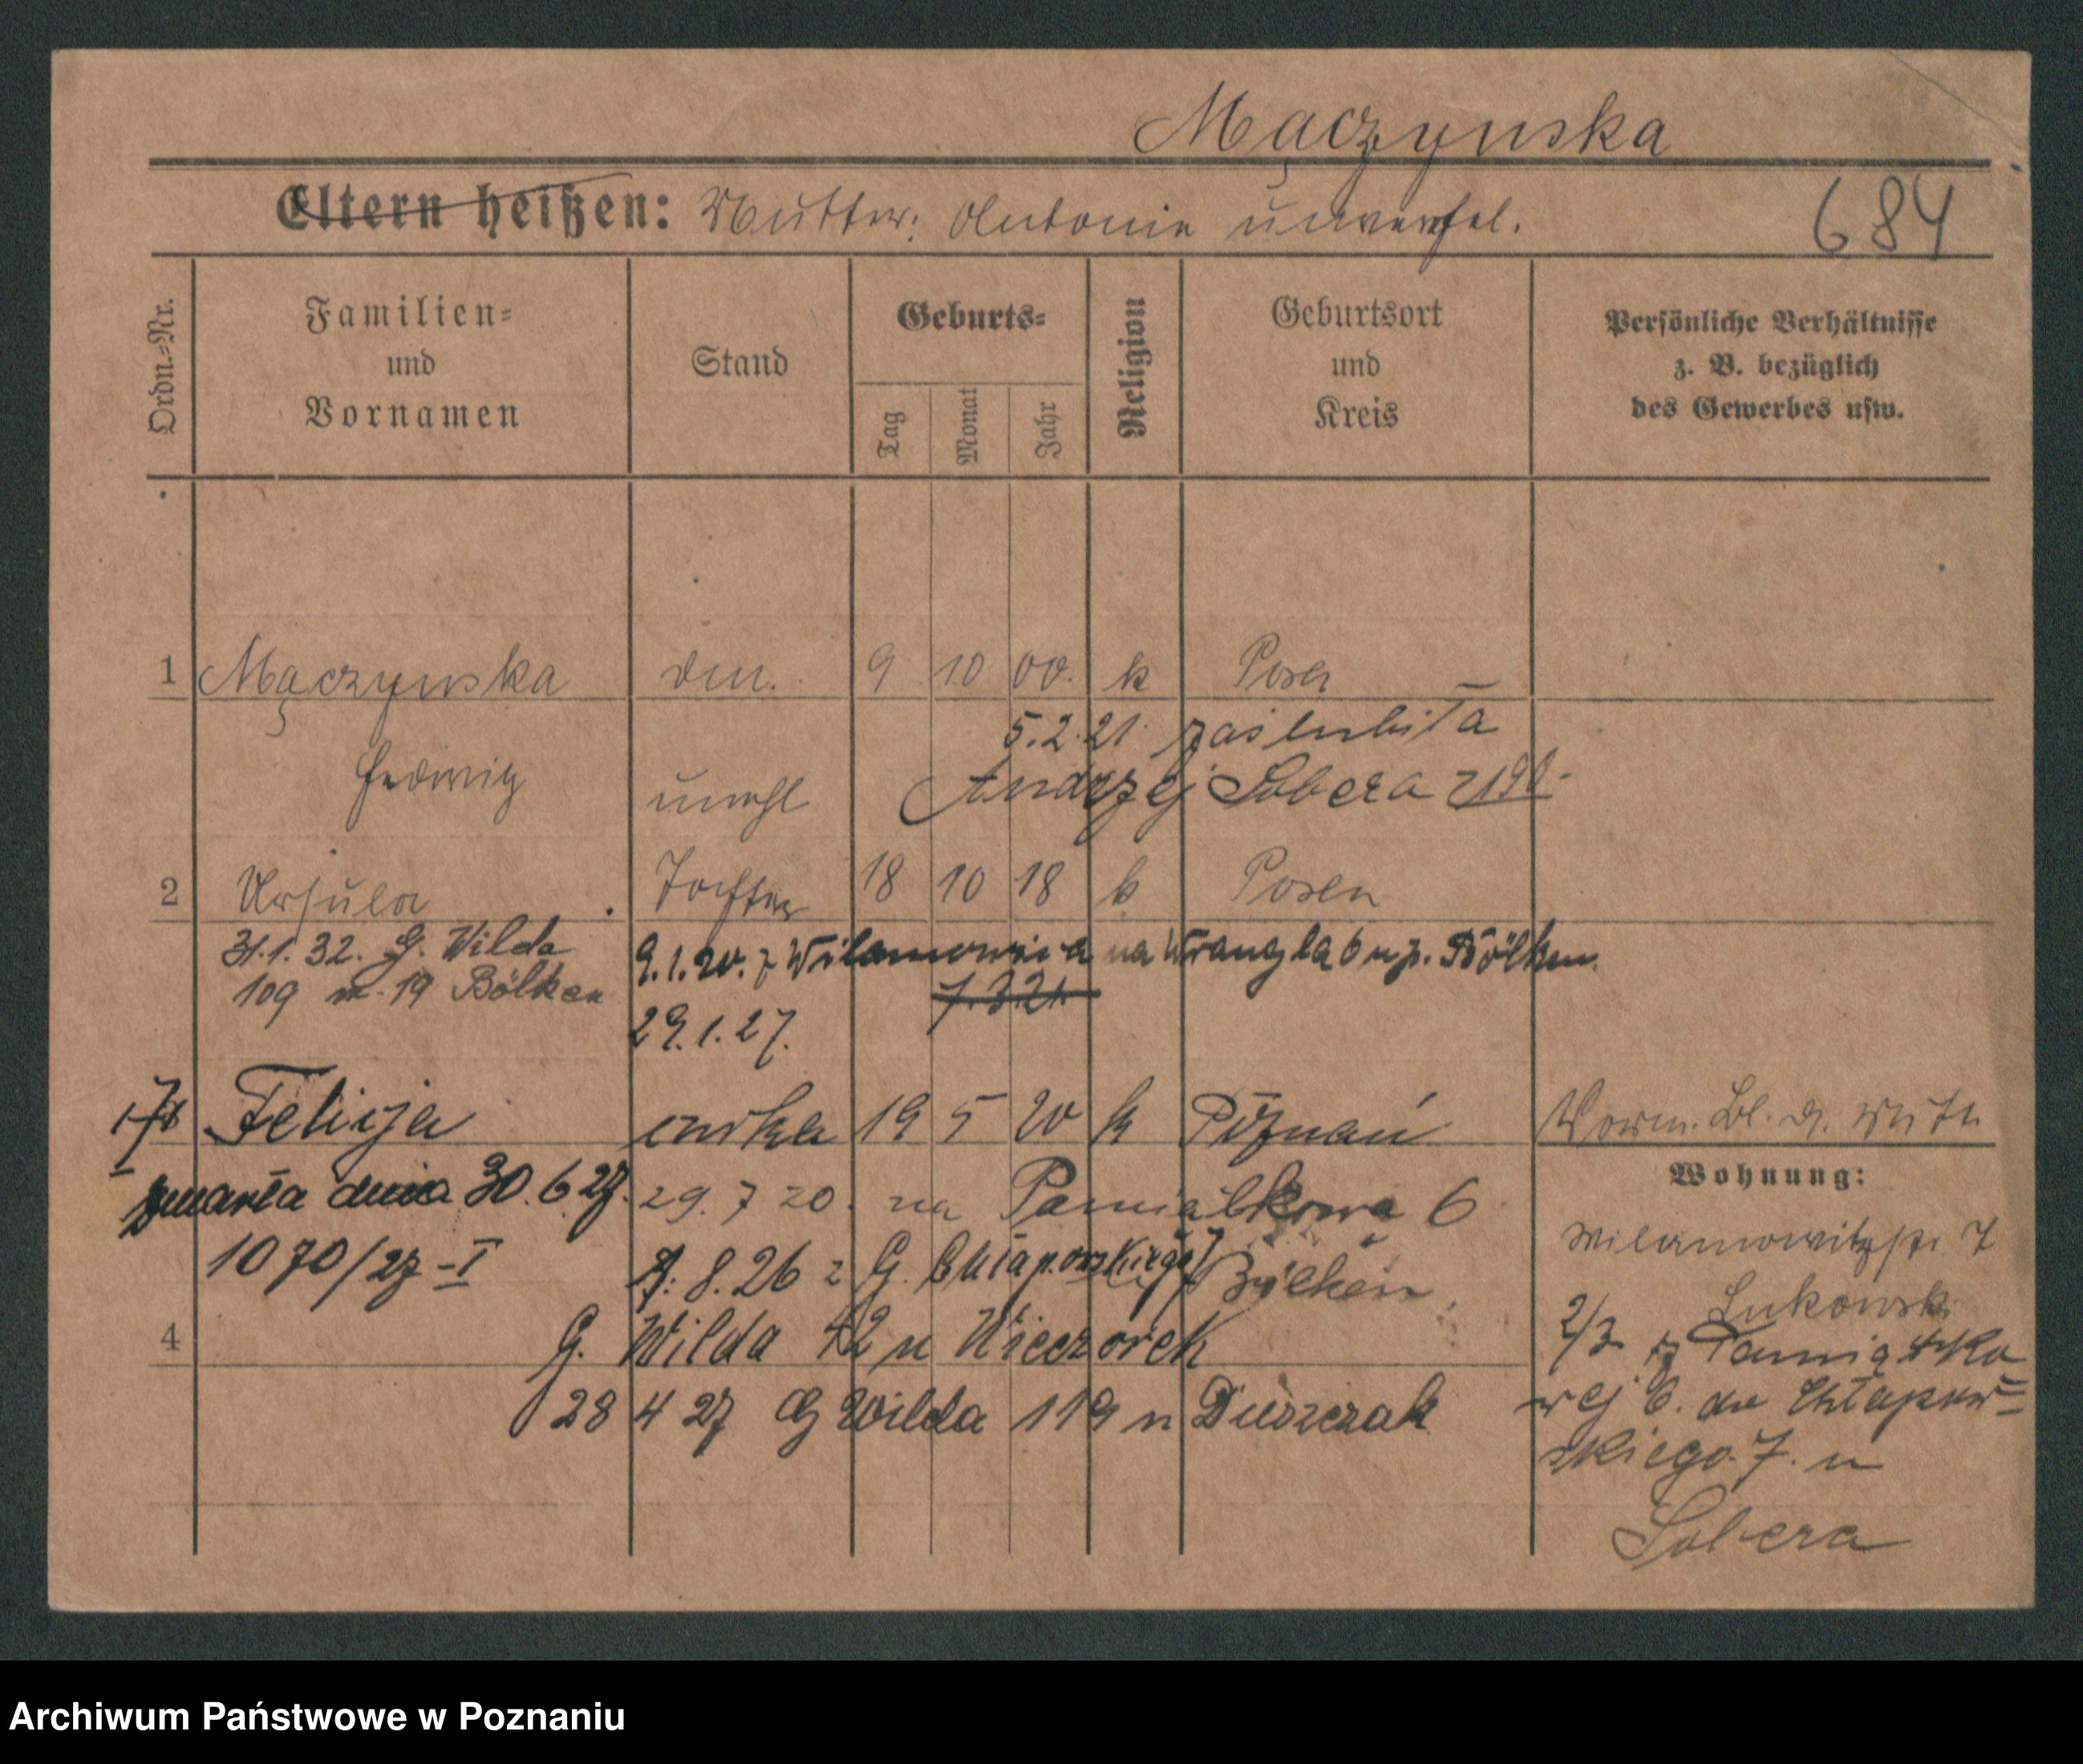 Mączynska
Eltern heißen: Mutter: Antonie unverehel.
684
Ordn.-Nr.
Familien- und Vornamen
Stand
Geburts-
Tag Monat Jahr
Religion
Geburtsort und Kreis
Persönliche Verhältnisse z. B. bezüglich des Gewerbes usw.
1 Mączynska 9 10 00. k Posen
5.2.21. zaślubiła
Hedwig unehl Andrzej Sobera
2 Ursula Tochter 18 10 18 k Posen
31.1.32. G. Wilda
109 m. 19 Bölken
9.1.20. z Wilamowica na Wrangla 6 u p. Bölken.
7.3.21.
29.1.27.
Felicja córka 19 5 20 k Poznań
zmarła dnia 30.6.27.
1070/27-I
29.7 20. na Pamiątkowa 6
Bölken
8.26 z G. Chłapowskiego 7
4
G. Wilda 42 u Wieczorek
28 4 27 G Wilda 119 u
Wohnung:
Wilamowitzstr 7
Lukowski
2/3 z Pamiątko
wej 6. do Chłapow=
skiego 7. u
Sobera
Archiwum Państwowe w Poznaniu